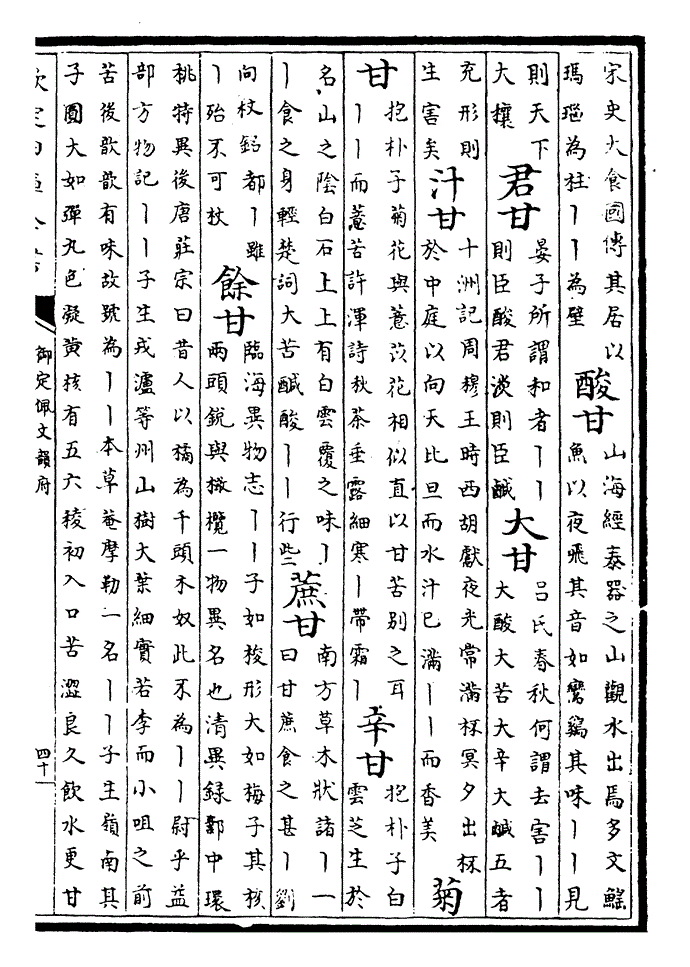 宋史大食國傳其居以
瑪瑙為柱丨丨為壁
酸甘
山海經泰器之山觀水出焉多文鰩
魚以夜飛其音如鸞鷄其味丨丨見
則天下
大穰
君甘
晏子所謂和者丨丨
則臣酸君淡則臣鹹
大甘
呂氏春秋何謂去害丨丨
大酸大苦大辛大鹹五者
充形則
生害矣
汁甘
十洲記周穆王時西胡獻夜光常滿杯冥夕出杯
於中庭以向天比旦而水汁已滿丨丨而香美
菊
甘
抱朴子菊花與薏苡花相似直以甘苦别之耳
丨丨而薏苦許渾詩秋茶垂露細寒丨帶霜丨
辛甘
抱朴子白
雲芝生於
名山之陰白石上上有白雲覆之味丨
丨食之身輕楚詞大苦鹹酸丨丨行些
蔗甘
南方草木狀諸丨一
曰甘蔗食之甚丨劉
向杖銘都丨雖
丨殆不可杖
餘甘
臨海異物志丨丨子如梭形大如梅子其核
兩頭銳與橄欖一物異名也清異録鄴中環
桃特異後唐莊宗曰昔人以橘為千頭木奴此不為丨丨尉乎益
部方物記丨丨子生戎瀘等州山樹大葉細實若李而小咀之前
苦後歆歆有味故號為丨丨本草菴摩勒一名丨丨子生嶺南其
子圓大如彈丸色凝黄核有五六稜初入口苦澀良久飲水更甘
欽定四庫全書
御定佩文韻府
四十